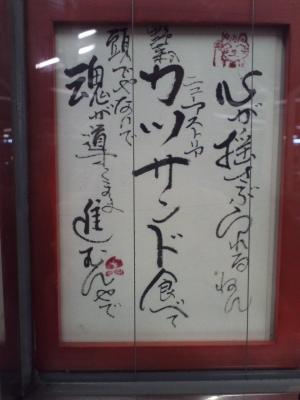 心が揺さぶられるねん
ニューアストリア
野菜カツサンド食べて
頭でやないで
魂が導くまま進むんやで